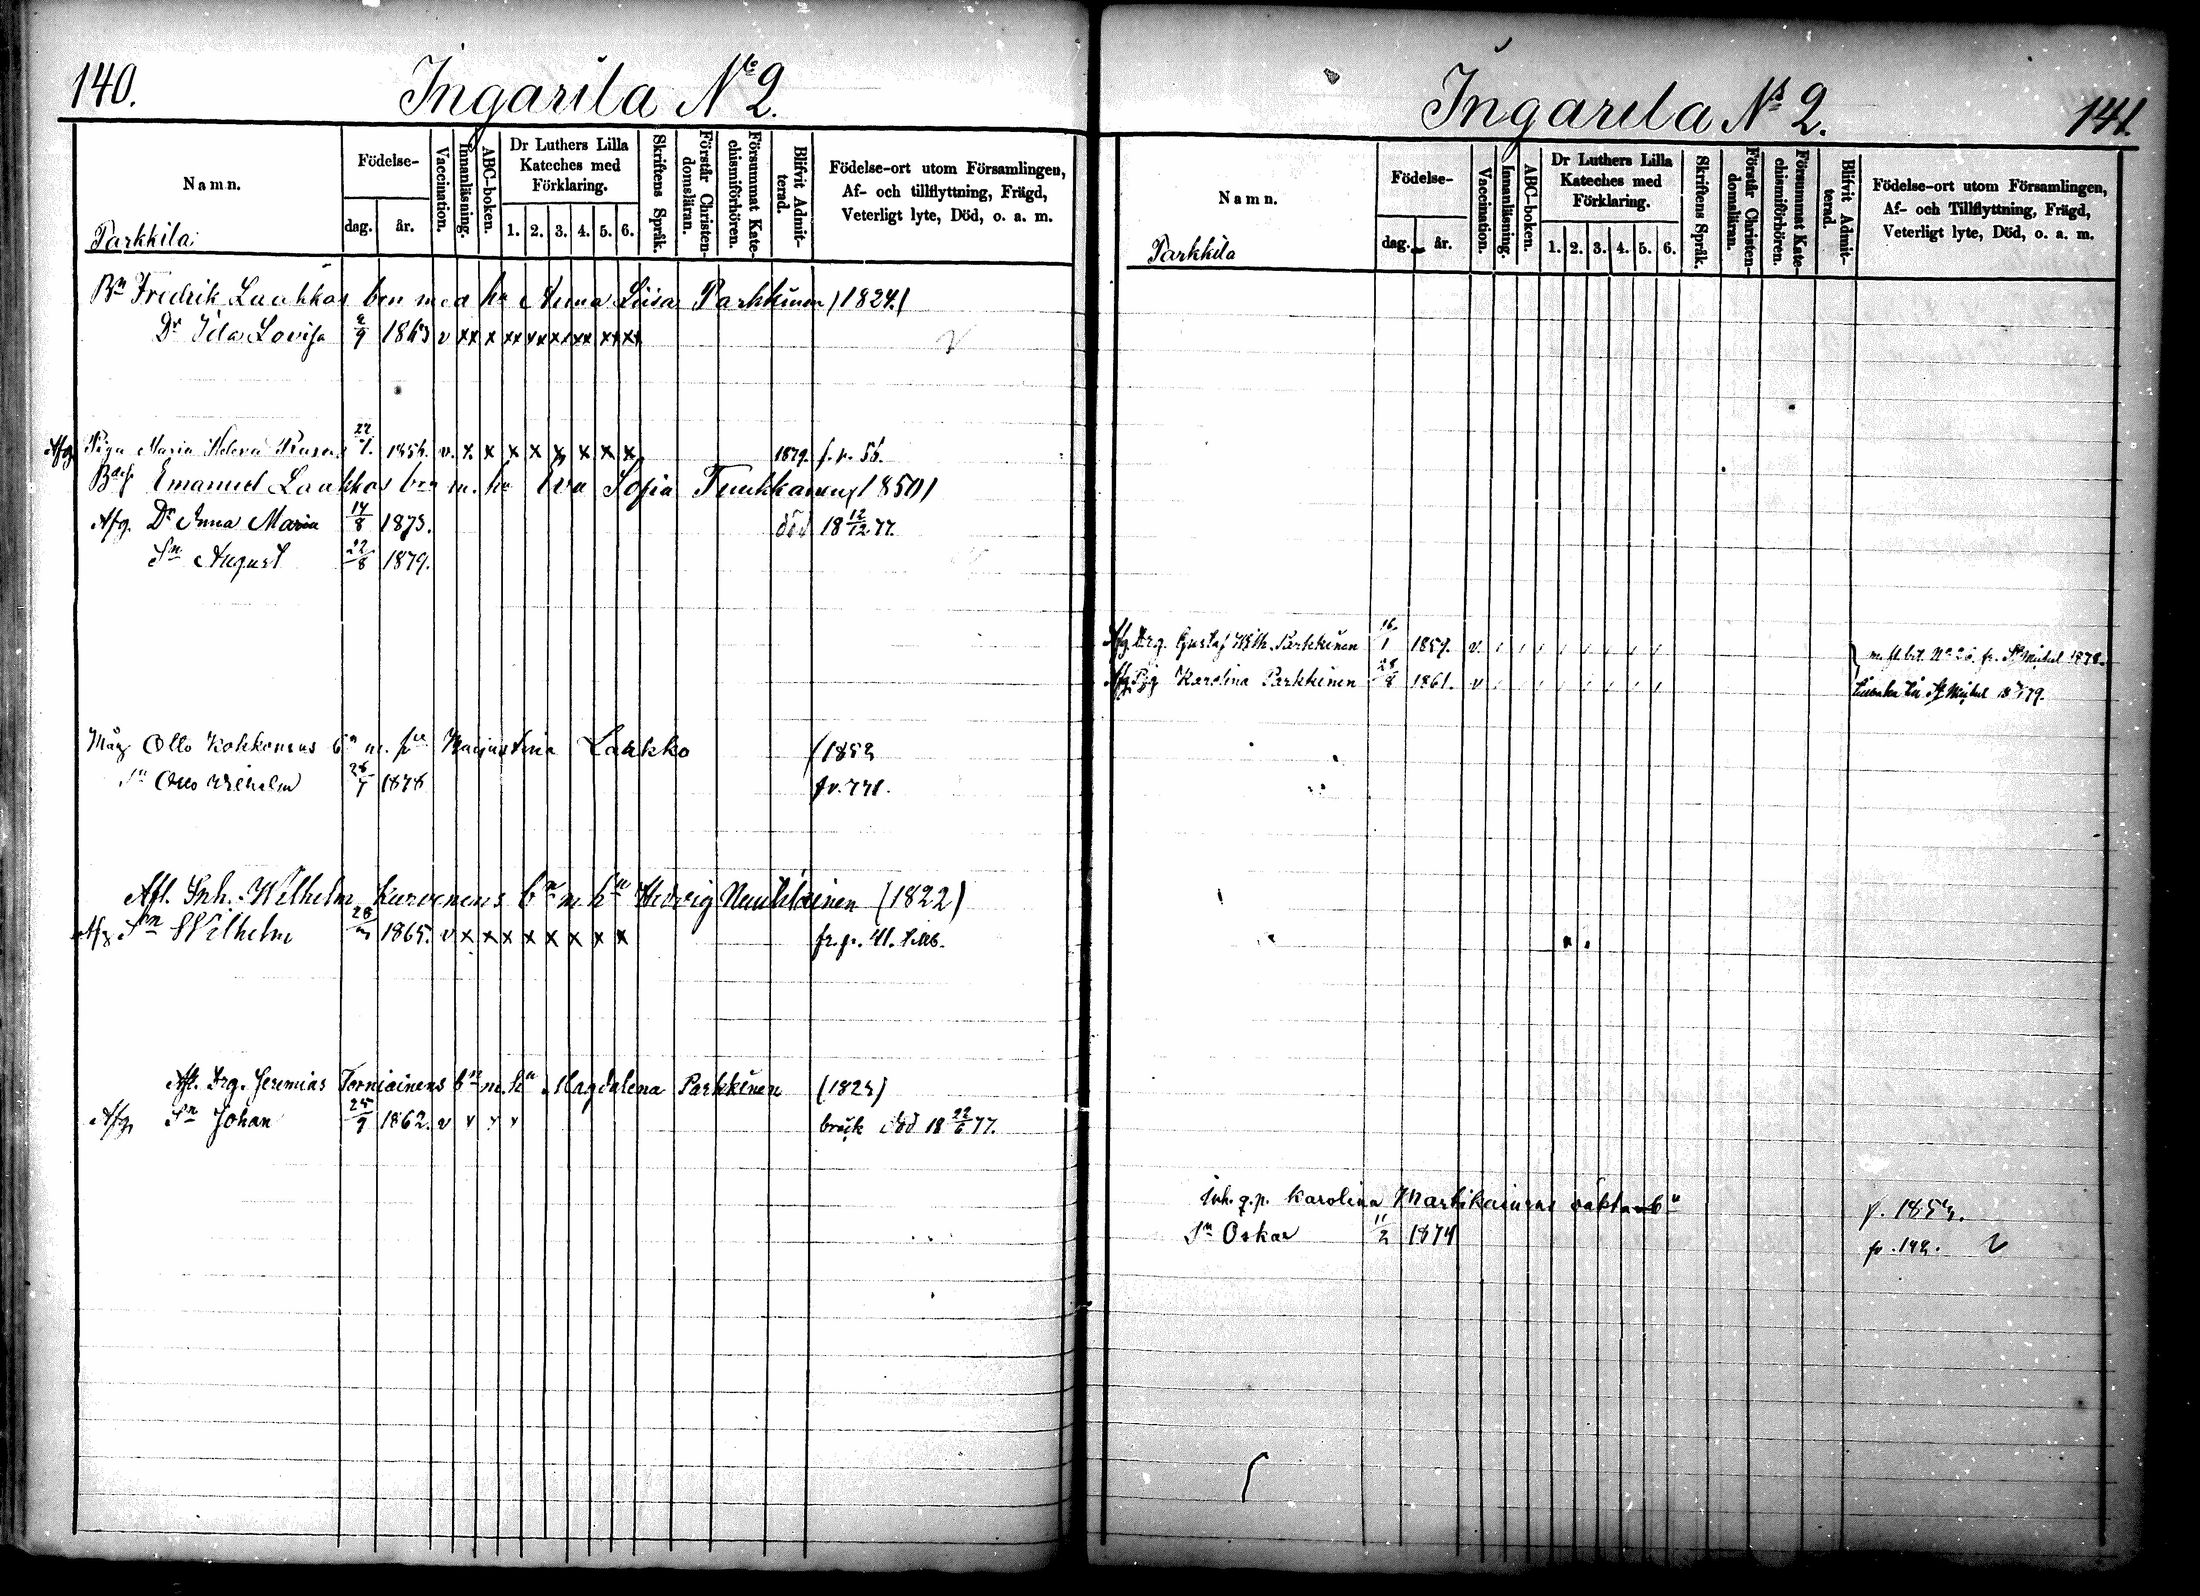 140.
Ingarila No 2.
Namn.
Födelse-
dag.
år.
Vaccination.
Innanläsning.
ABC-boken.
Dr Luthers Lilla
Kateches med
Förklaring.
1. 2. 3. 4. 5. 6.
Skriftens Språk.
Förstår Christen-
domsläran.
Försummat Kate-
chismiförhören.
Blifvit Admit-
terad.
Födelse-ort utom Församlingen,
Af- och tillflyttning, Frägd,
Veterligt lyte, Död, o. a. m.
Parkkila
Bn Fredrik Laukkas ben med hu Anna Liisa Parkkinen (1824)
Dr Ida Lovisa 9 1863 v xx x xx xx xx xx xx xx
Afg. Pigu Maria Helena 22 1. v. x x x x x x x x 1879.
Emanuel Laukkas ben m. hu Eva Sofia (1850)
Afg. Dr Anna Maria 14/8 1875. död 18 12/12 77.
Sn August 22/8 1879.
Otto Kokkonens bn m. hu Laukko (1852
Sn Otto Wilhelm 7 1878
Afl. Inh. Wilhelm Kurvenens bn m. hu Hedvig (1822)
Afg Sn Wilhelm 28 1865. v x x x x x x x x
Afl. Drg. Jeremias Torniainens bn m. hu Magdalena Parkkinen
Afg. Sn Johan 25/9 1862. v v v v bräck död 18 22/6 77.
Ingarila No 2.
141.
Namn.
Födelse-
dag.
år.
Vaccination.
Innanläsning.
ABC-boken.
Dr Luthers Lilla
Kateches med
Förklaring.
1. 2. 3. 4. 5. 6.
Skriftens Språk.
Förstår Christen-
domsläran.
Försummat Kate-
chismiförhören.
Blifvit Admit-
terad.
Födelse-ort utom Församlingen,
Af- och Tillflyttning, Frägd,
Veterligt lyte, Död, o. a. m.
Parkkila
Afg. Drg. Gustaf Wilh. Parkkinen 16/1 v. fr. St Michel 1878.
Afg. Pig Karolina Parkkinen 28/8 1861. v St Michel
Inh. q.p. Karolina Martikainens oäkta bn
Sn Oskar 11/2 1874 142.